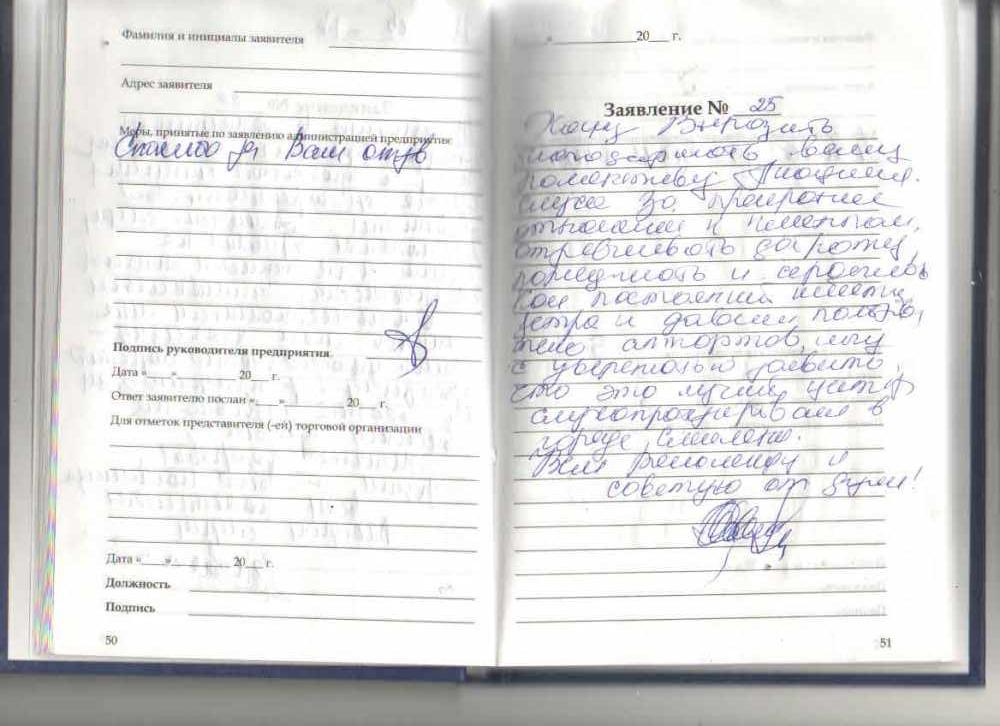 Фамилия и инициалы заявителя
Адрес заявителя
Меры, принятые по заявлению администрацией предприятия
Спасибо за Ваш отзыв
Подпись руководителя предприятия
Дата «___»__________ 20___ г.
Ответ заявителю послан «___»__________ 20___ г.
Для отметок представителя (-ей) торговой организации
Дата «___»__________ 20___ г.
Должность
Подпись
50
«___________20___ г.
Заявление № 25
Хочу Выразить
благодарность вашему
за прекрасное
отношение к клиентам,
отзывчивость заботу,
и
Как постоянный клиент
центра и давний пользо,
тель могу
с уверенностью заявить,
что это лучший центр
слухопротезирования в
городе
Всем Рекомендую и
советую от души!
51